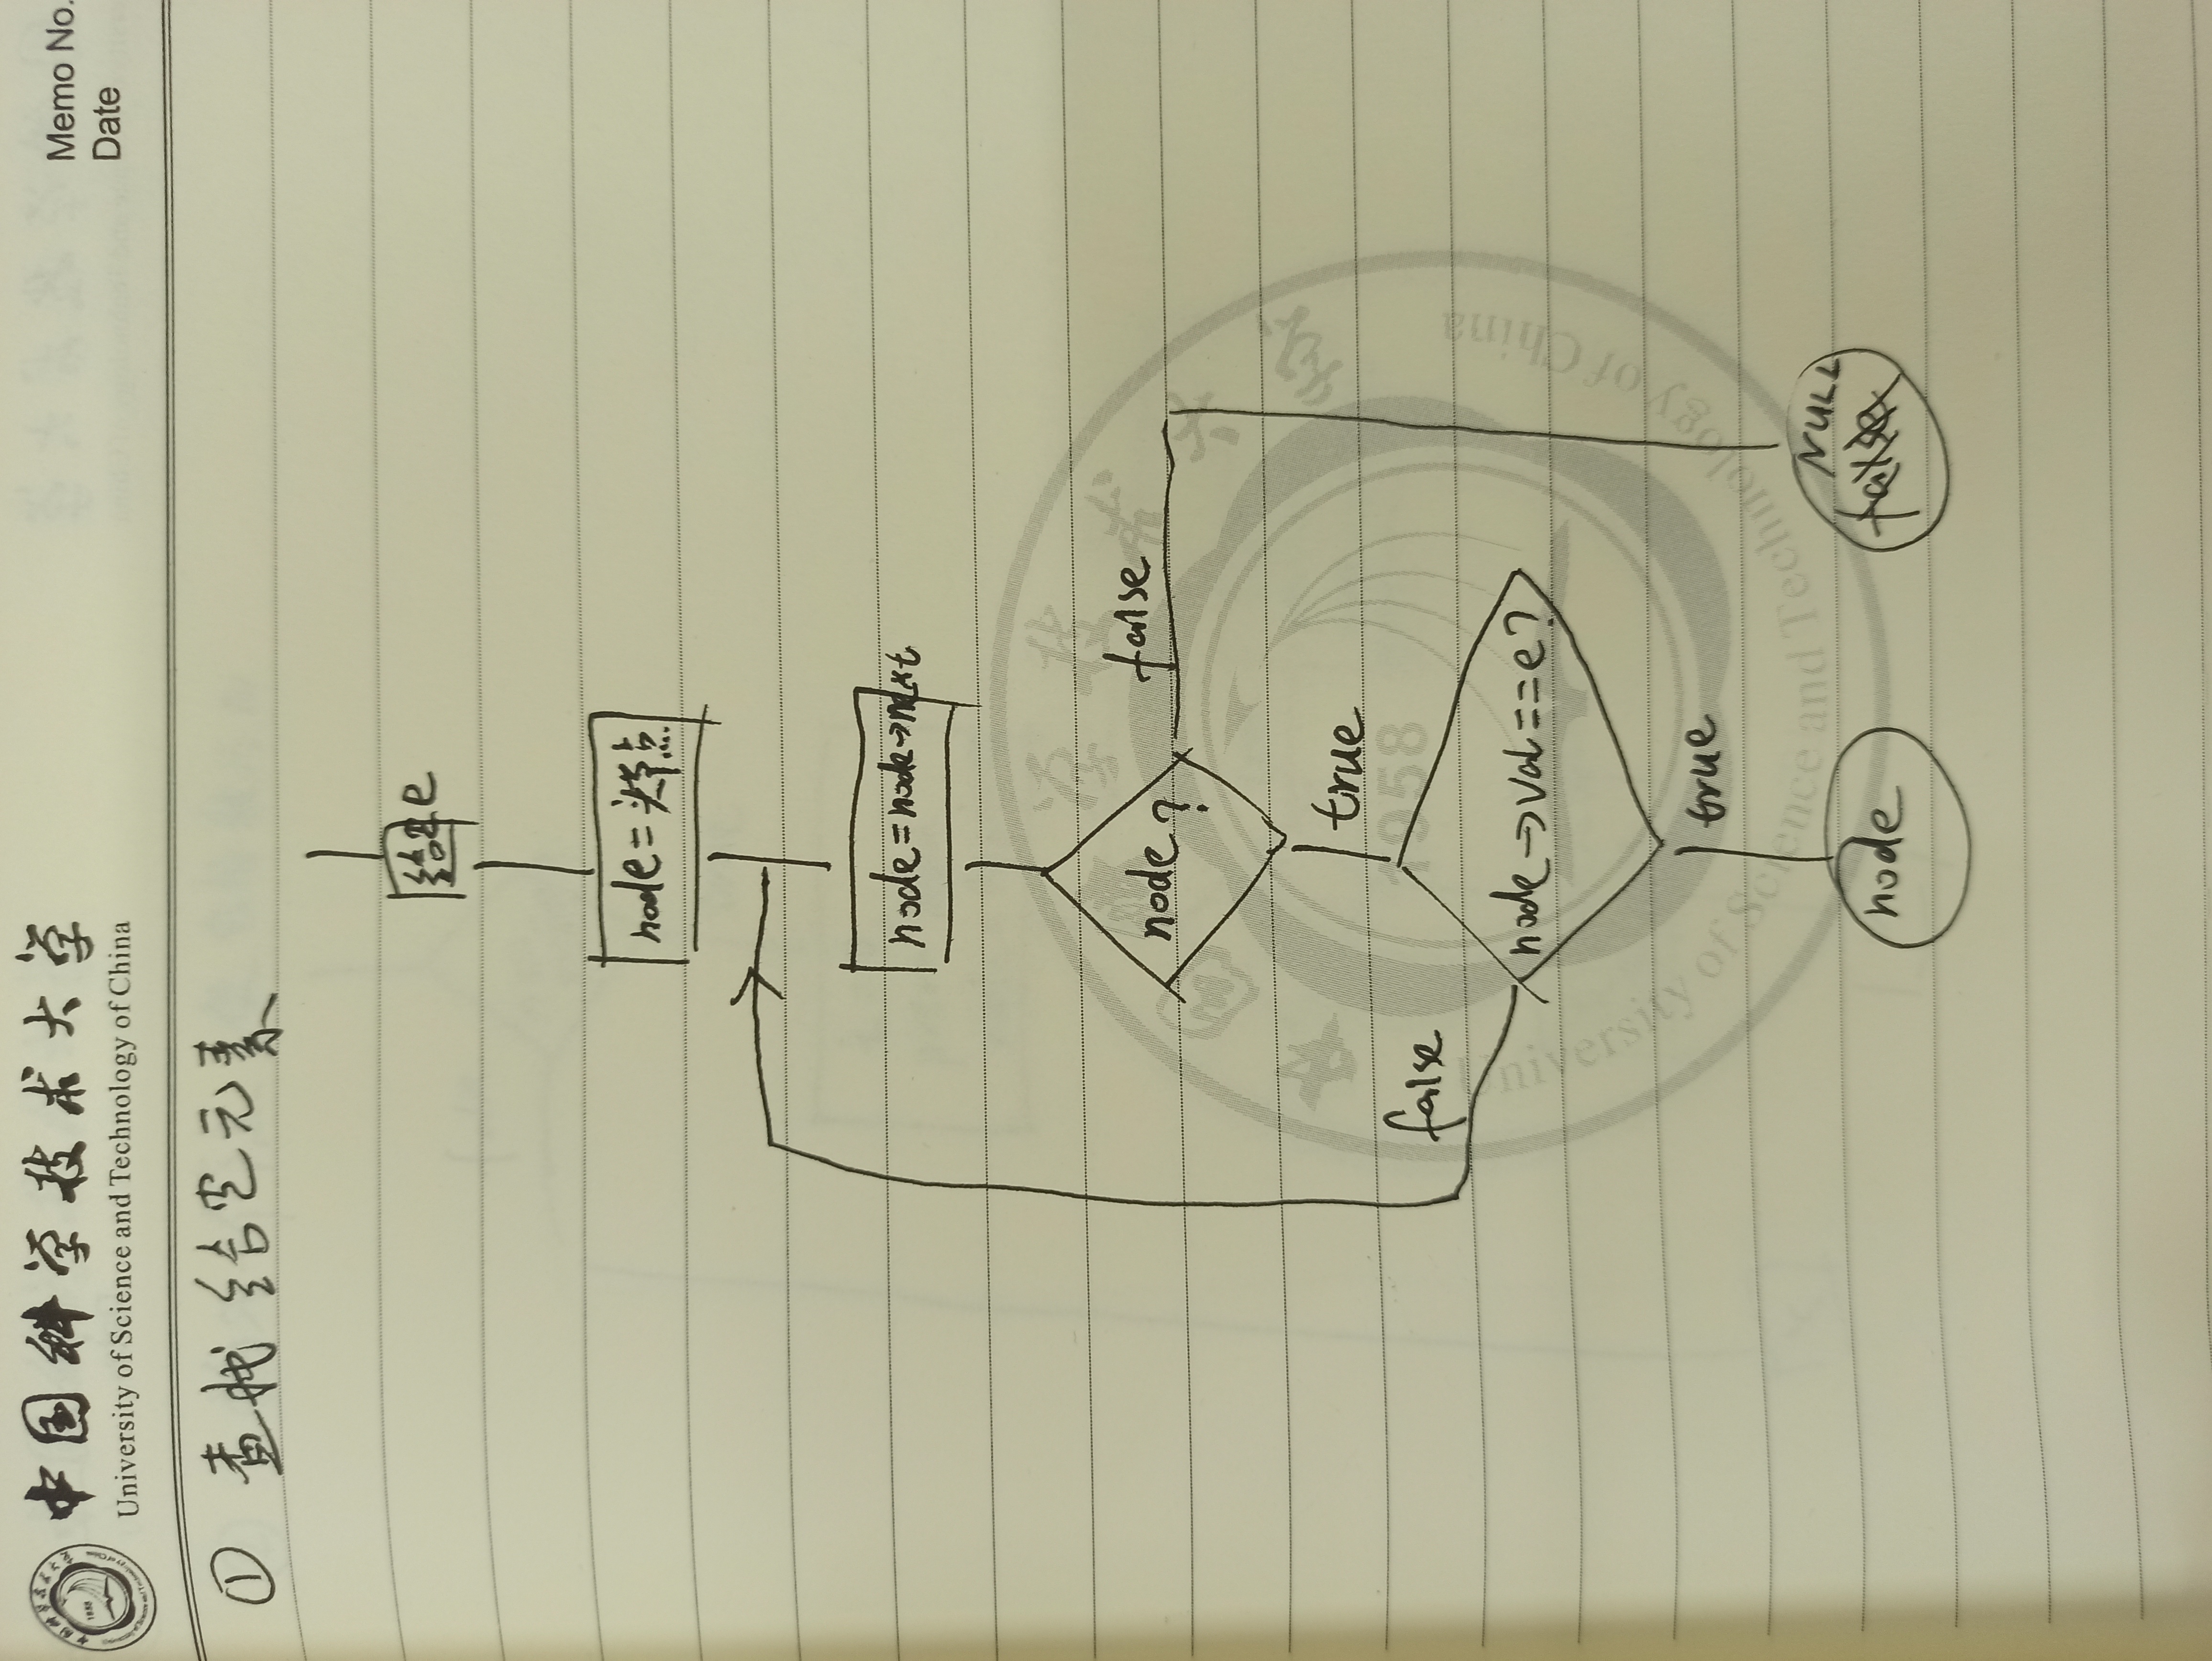 中国科学技术大学
University of Science and Technology of China
Memo No.
Date
① 查找 给定元素
给定e
node=头节点
node=node→next
node?
false
true
false
node→val==e?
true
node
NULL
1958
University of Science and Technology of China